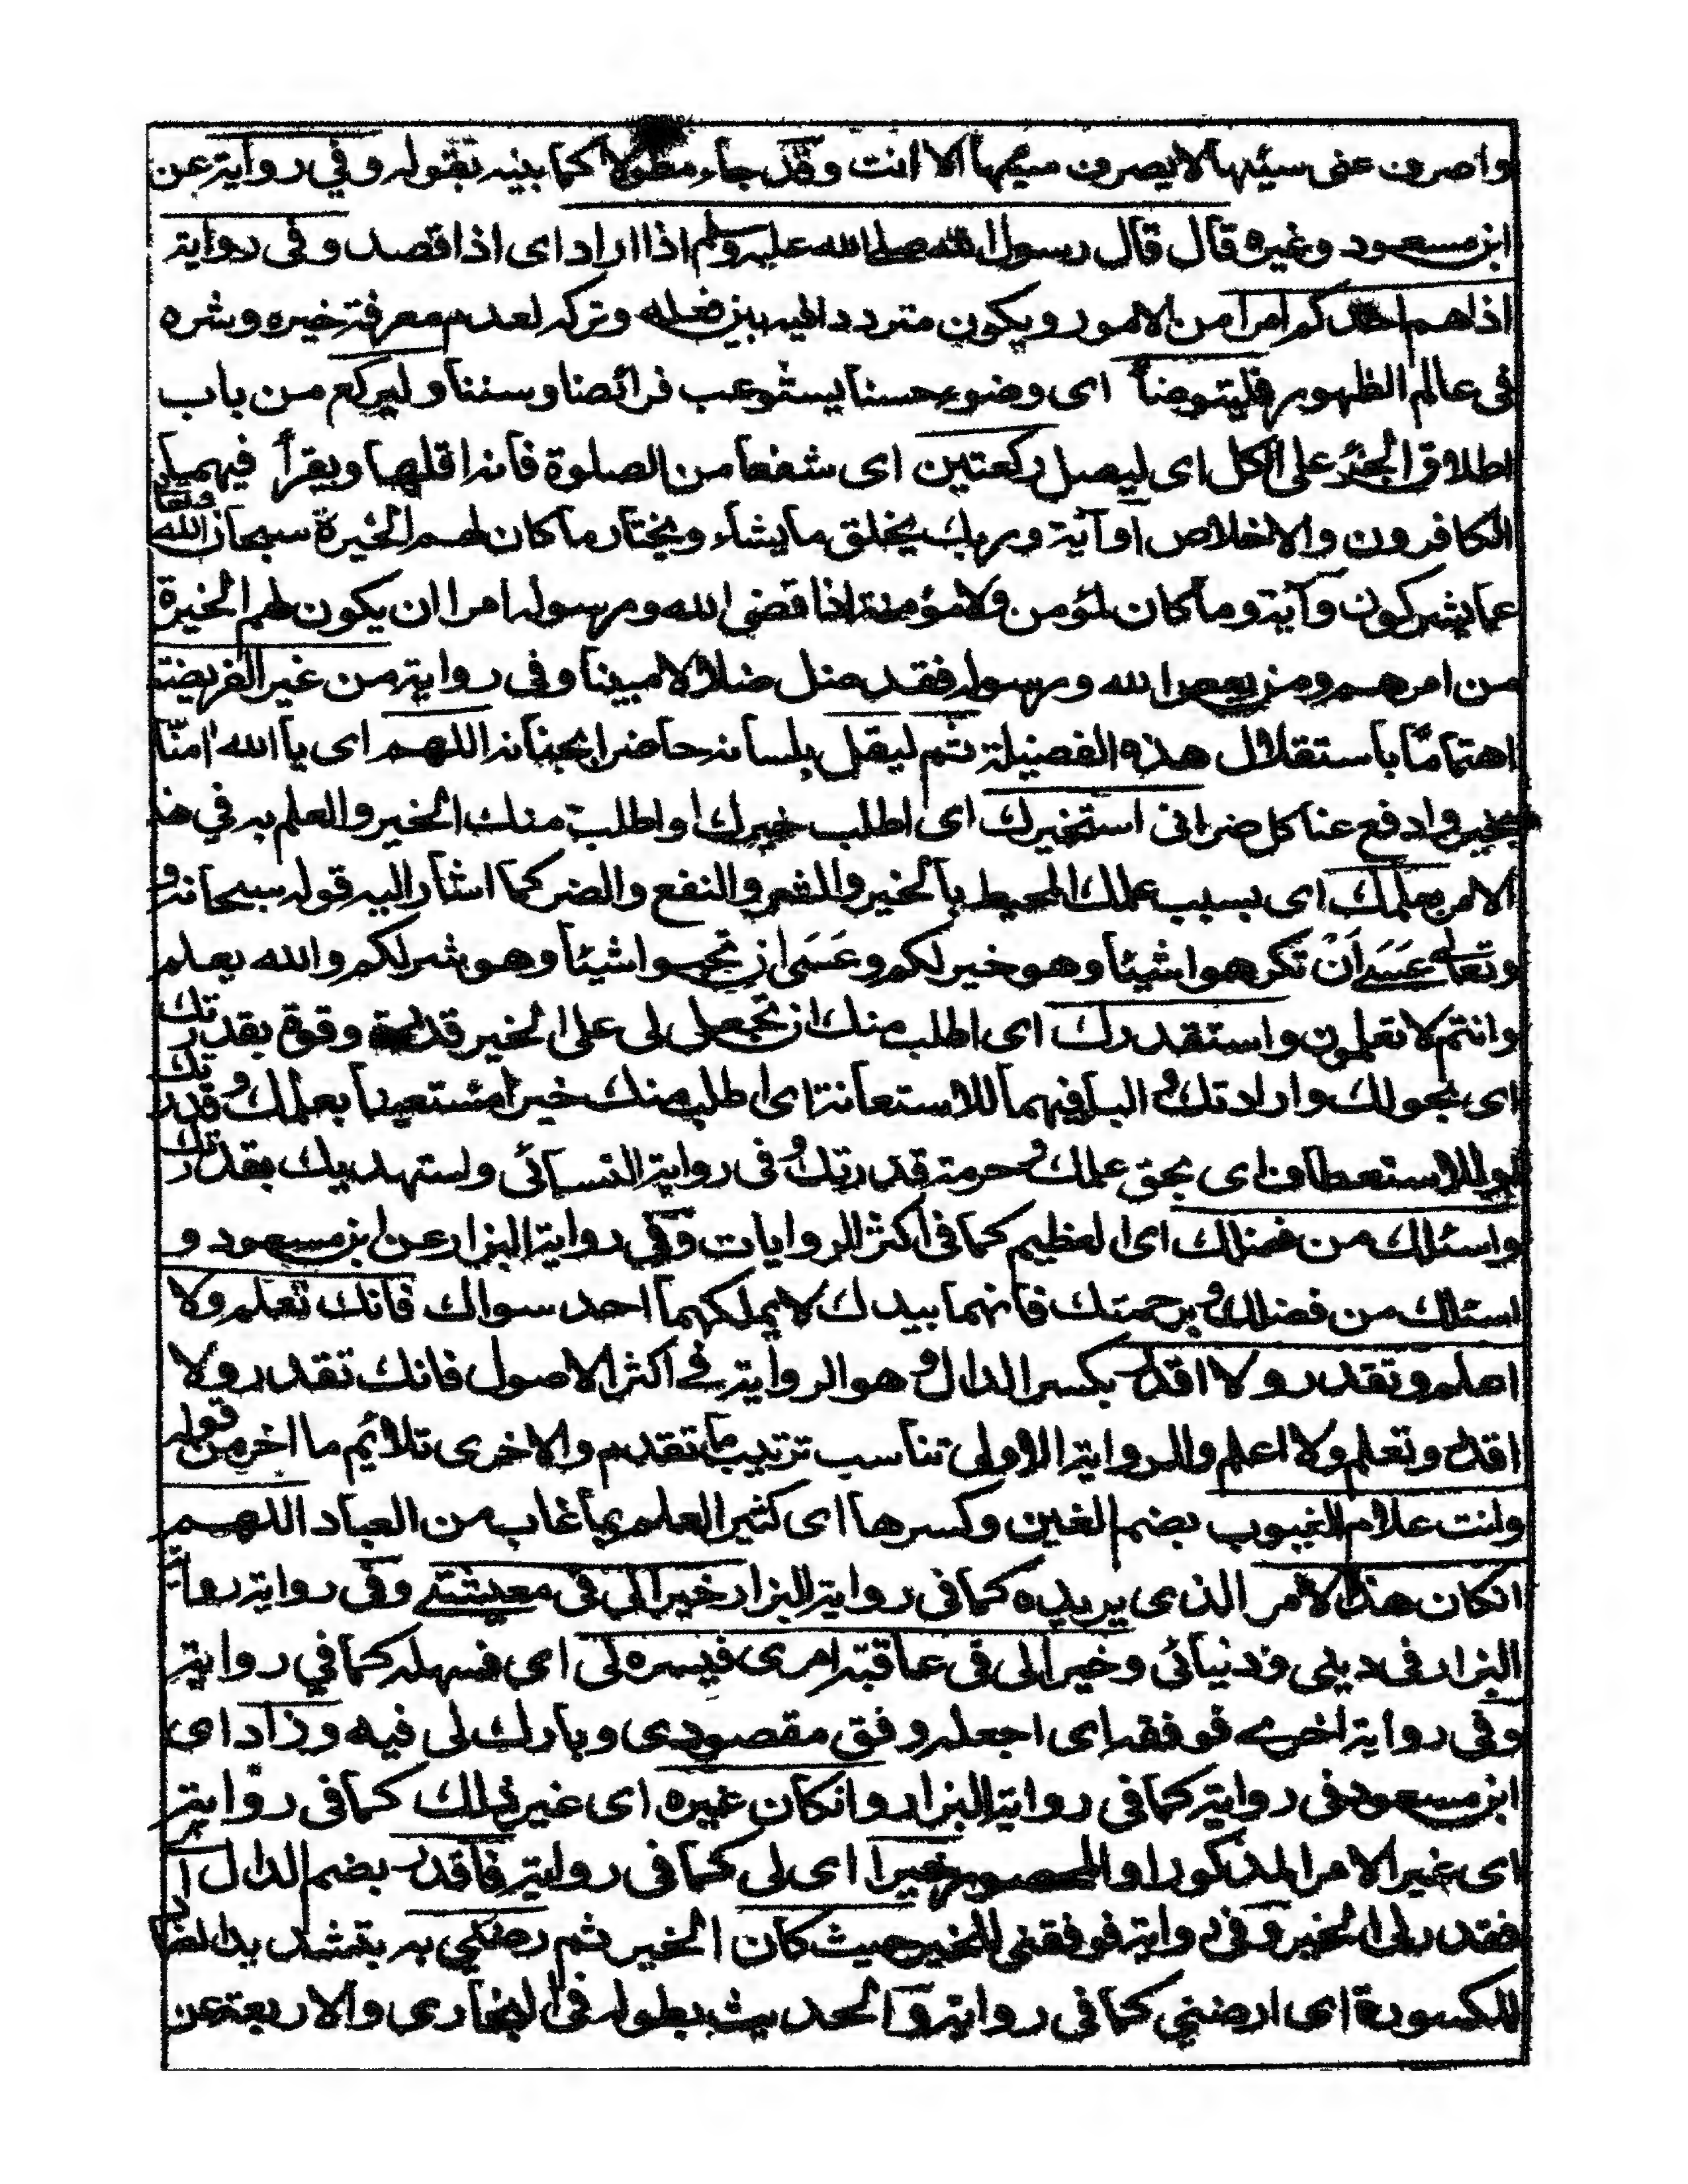 واصرف عنى سيئها لا يصرف سيئها الا انت وقد جاء مطولا كما بينه بقوله وفي رواية عن
ابن مسعود وغيره قال قال رسول الله صلى الله عليه وسلم اذا اراد اى اذا قصد وفى رواية
اذا هم احدكم امرا من الامور ويكون متردد اليه بين فعله وتركه لعدم معرفة خيره وشره
فى عالم الظهور فليتوضأ اى وضوء حسنا يستوعب فرائضا وسننا وليركع من باب
اطلاق الجزء على الكل اى ليصل ركعتين اى شفعا من الصلوة فانه اقلها ويقرأ فيهما
الكافرون والاخلاص او آية وربك يخلق ما يشاء ويختار ما كان لهم الخيرة سبحان الله وتعالى
عما يشركون وآية وما كان لمؤمن ولا مؤمنة اذا قضى الله ورسوله امرا ان يكون لهم الخيرة
من امرهم ومن يعص الله ورسوله فقد ضل ضلالا مبينا وفى رواية من غير الفريضة
اهتماما باستقلال هذه الفضيلة ثم ليقل بلسانه حاضرا بجنانه اللهم اى يا الله امنا
بخير وادفع عنا كل ضر انى استخيرك اى اطلب خيرك او اطلب منك الخير والعلم به في هذ
الامر بعلمك اى بسبب علمك المحيط بالخير والشر والنفع والضر كما اشار اليه قوله سبحانه و
وتعالى عَسَى اَنْ تكرهوا شيئا وهو خير لكم وعَسَى ان تحبوا شيئا وهو شر لكم والله يعلم
وانتم لا تعلمون واستقدرك اى اطلب منك ان تجعل لى على الخير قدرة وقوة بقدرتك
اى بحولك وارادتك و البا فيهما للاستعانة اى اطلب منك خيرا مستعينا بعلمك و قدرتك
او للاستعطاف اى بحق علمك و حرمة قدرتك و فى رواية النسائى واستهديك بقدرتك
واسئلك من فضلك اى العظيم كما فى اكثر الروايات وفي رواية البزار عن ابن مسعود و
اسئلك من فضلك و برحمتك فانهما بيدك لا يملكهما احد سواك فانك تعلم ولا
اعلم وتقدر ولا اقدر بكسر الدال و هو الرواية في اكثر الاصول فانك تقدر ولا
اقدر وتعلم ولا اعلم والرواية الاولى تناسب ترتيب ما تقدم والاخرى تلائم ما اخر من قوله
وانت علام الغيوب بضم الغين وكسرها اى كثير العلم بما غاب من العباد اللهم
انكان هذا الامر الذى يريده كما فى رواية البزار خيرا لى فى معيشتے وفى رواية رواية
البزار فى دينى ودنيائى وخيرا لى فى عاقبة امرى فيسره لى اى فسهله كما في رواية
وفى رواية اخرے فوفقه اى اجعله وفق مقصودى وبارك لى فيه وزاد اى
ابن مسعود فى رواية كما فى رواية البزار وانكان غيره اى غير ذلك كما فى رواية
اى غير الامر المذكور او المحصور خيرا اى لى كما فى رواية فاقدر بضم الدال اى
فقدر لى الخير وفى رواية فوفقنى للخير حيث كان الخير ثم رضنى به بتشديد الضاد
المكسورة اى ارضنى كما فى رواية و الحديث بطوله فى البخارى والاربعة عن